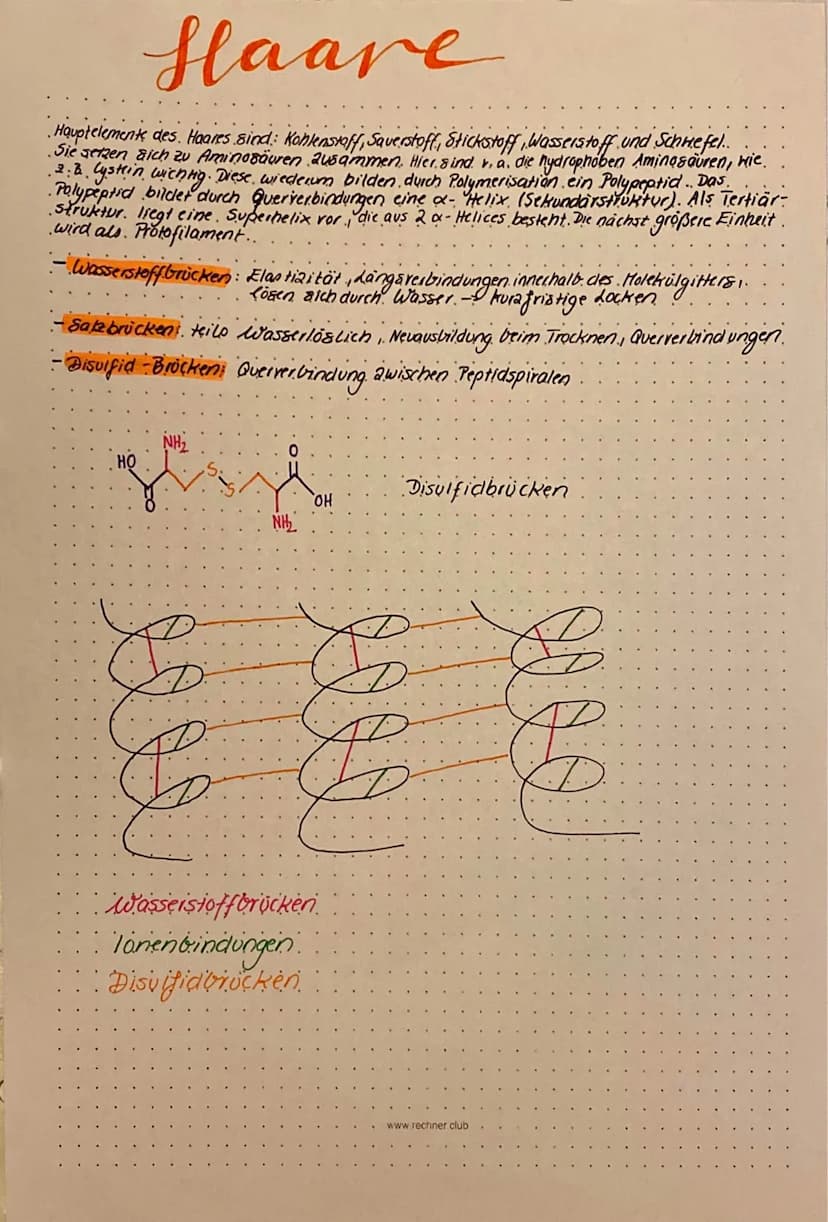 Haare
Hauptelemente des Haares sind: Kohlenstoff, Sauerstoff, Stickstoff, Wasserstoff und Schwefel.
Sie setzen sich zu Aminosäuren zusammen. Hier sind v. a. die hydrophoben Aminosäuren, wie
z. B. Cystein wichtig. Diese wiederum bilden durch Polymerisation ein Polypeptid. Das
Polypeptid bildet durch Querverbindungen eine α-Helix (Sekundärstruktur). Als Tertiär-
struktur liegt eine Superhelix vor, die aus 2 α-Helices besteht. Die nächst größere Einheit
wird als Protofilament.
- Wasserstoffbrücken: Elastizität, Längsverbindungen innerhalb des Molekülgitters,
lösen sich durch Wasser → kurzfristige Locken
- Salzbrücken: teils Wasserlöslich, Neuausbildung beim Trocknen, Querverbindungen
- Disulfid-Brücken: Querverbindung zwischen Peptidspiralen
NH₂
HO
O
S
S
O
OH
NH₂
Disulfidbrücken
Wasserstoffbrücken
Ionenbindungen
Disulfidbrücken
www.rechner.club